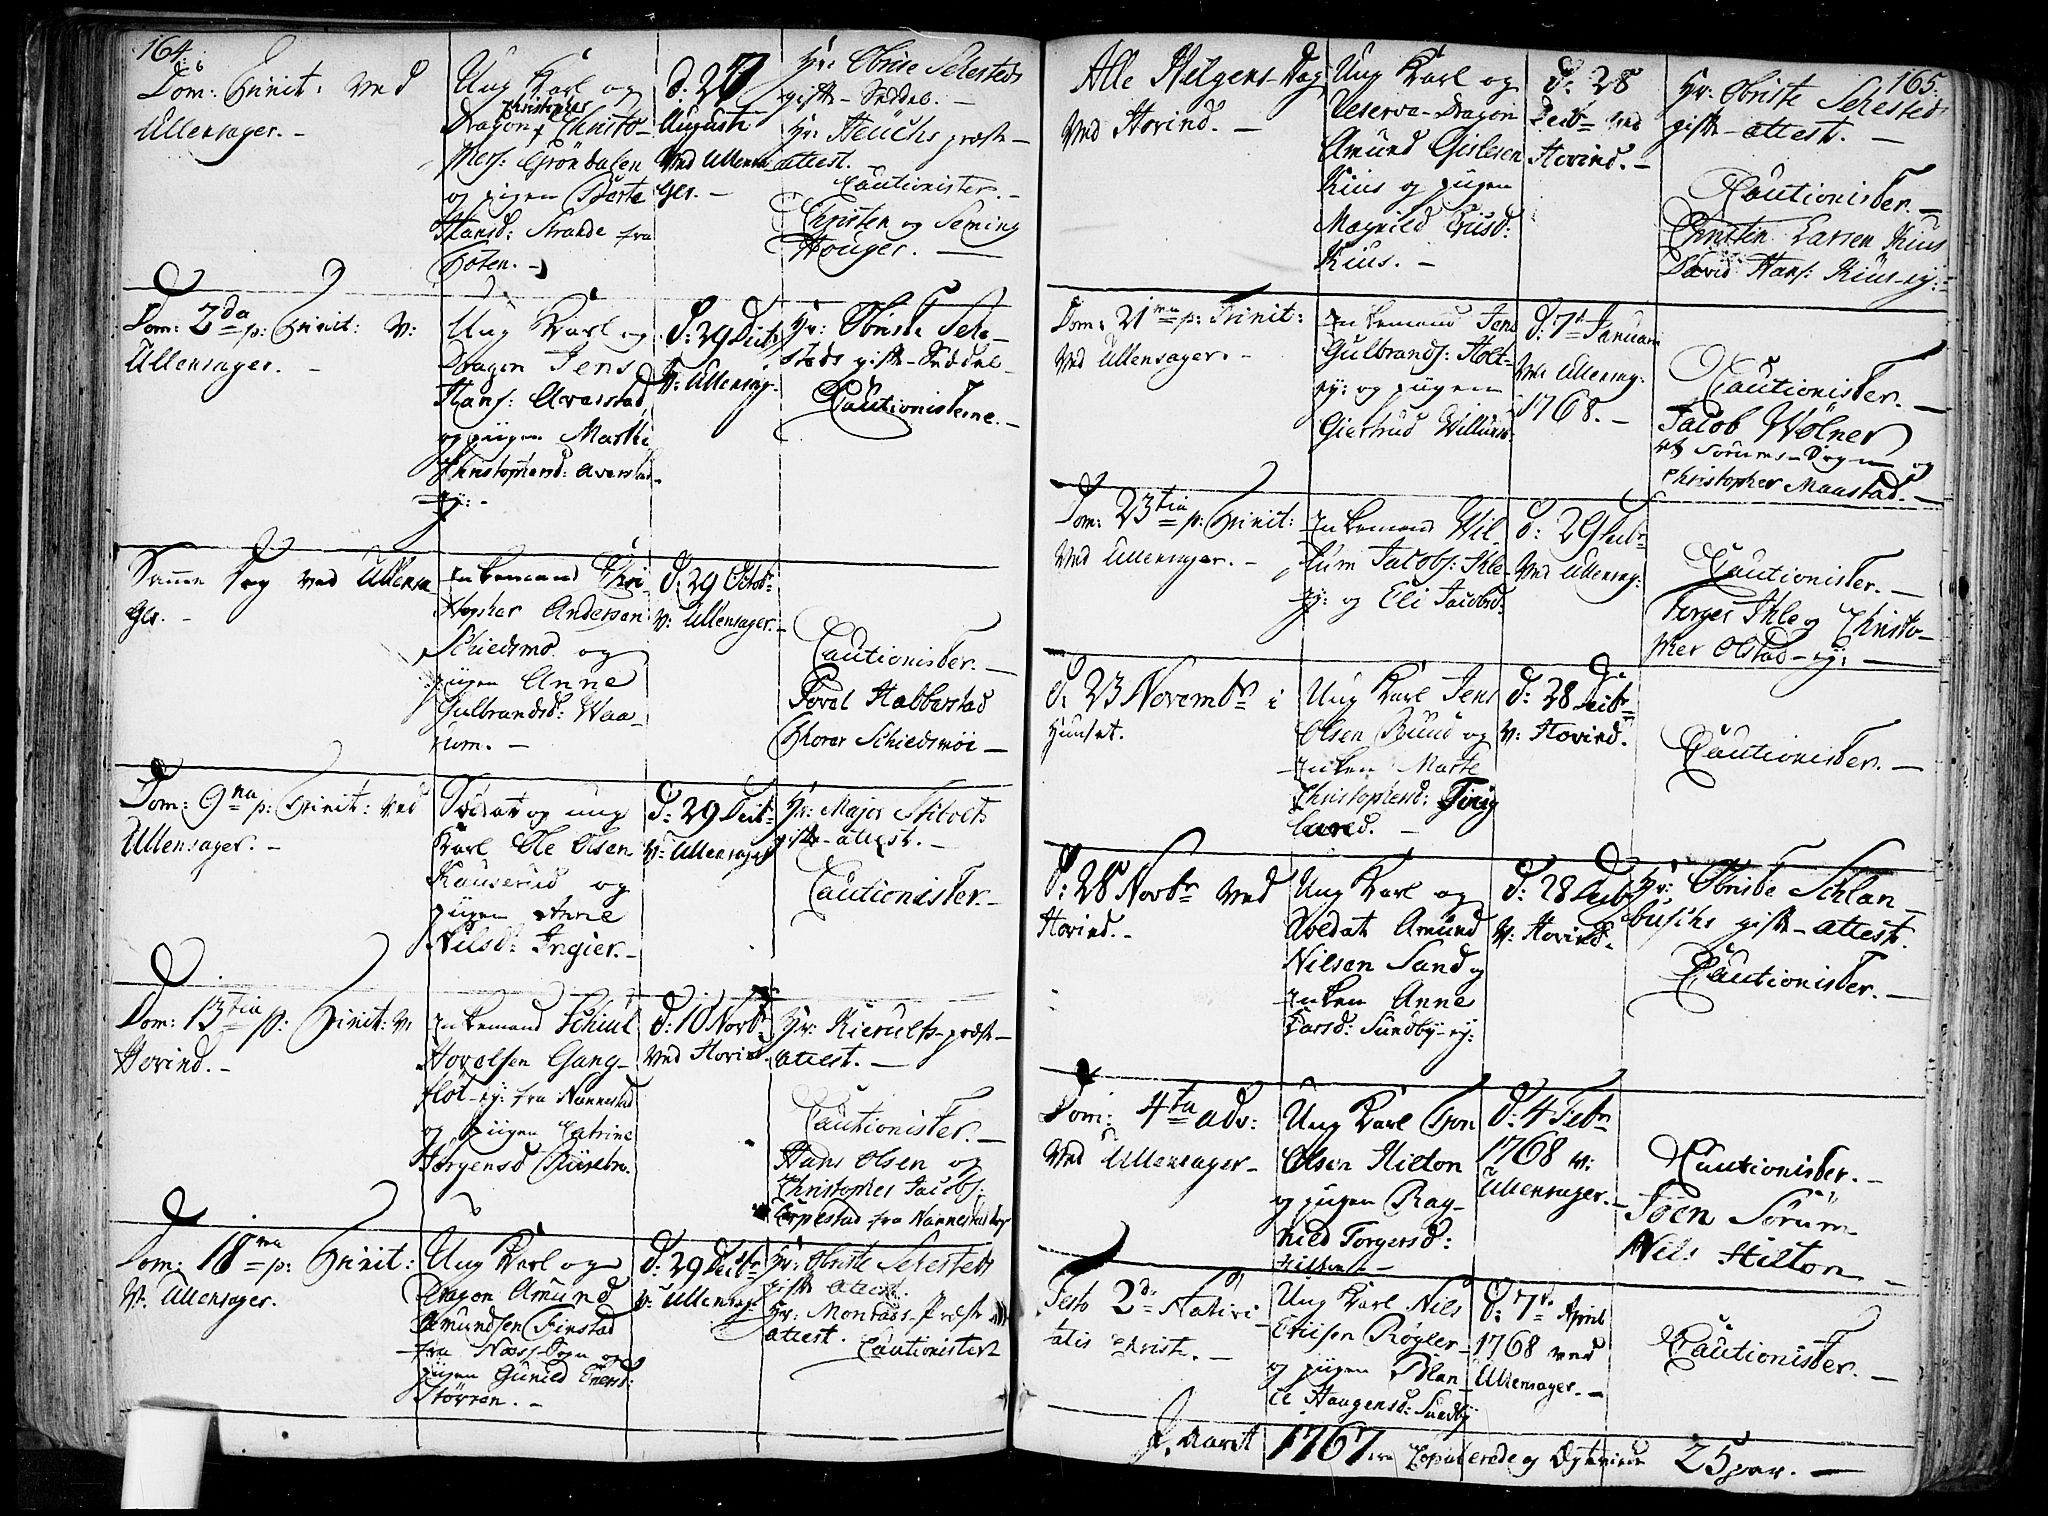 164.
Dom: Trinit: ved
Ullensager. -
Ung Karl og
Dragon Christo-
Christensen
phers: Gröndalen
og pigen Berte
Hansd: Strande fra
Holen. -
d: 27
Augusti
ved Ullensa-
ger. -
Hr: Obriste Sehesteds
gifte-Seddel. -
Hr: Heüchs præste-
attest. -
Cautionister. -
Christen og Seming
Houger. -
Dom: 2da p: Trinit: v:
Ullensager. -
Ung Karl og
Dragon Jens
Hans: Averstad
og pigen Marthe
Christophersd: Averstad-
ej: -
d: 29 Decbr
v: Ullensag:
Hr: Obriste Sehe-
steds gifte-Seddel
Cautionisterne. -
Samme Dag ved Ullensa
ger. -
Enkemand Chri-
stopher Andersen
Schiedsmo og
pigen Anne
Gulbrandsd: Waa-
rum. -
d: 29 Octobr
v: Ullensager. -
Cautionister. -
Povel Habberstad
Thorer Schiedsmoe -
Dom: 9na p: Trinit: ved
Ullensager. -
Soldat og ung
Karl Ole Olsen
Kauserud og
pigen Anne
Nilsd: Ingier. -
d: 29 Decbr
v: Ullensager
Hr: Major Stibolts
gifte-attest. -
Cautionister. -
Dom: 13tia p: Trinit: v:
Hovind. -
Enkemand Schiul
Hovelsen Gang-
flöt-ej: fra Nannestad
og pigen Catrine
Jörgensd
d: 10 Novbr
ved Hovind.
Hr: Kierulfs-præste-
attest. -
Cautionister. -
Hans Olsen og
Christopher Jacobs:
Erpestad fra Nannestad
Dom: 18va p: Trinit:
v: Ullensager.
Ung Karl og
Dragon Amund
Amundsen Finstad
fra Næss-Sogn og
pigen Gunild Enersd:
Störren. -
d: 29 Decbr
v: Ullensag:
Hr: Obriste Sehesteds
gifte attest.
Hr: Monrads Præste
attest.
Cautionister
165.
Alle Helgens-Dag
ved Hovind. -
Ung Karl og
Reserve-Dragon
Amund Gislesen
Kius og pigen
Magnild Trusd:
Kius. -
d: 28
Decbr ved
Hovind. -
Hr: Obriste Sehesteds
gifte-attest. -
Cautionister. -
Christen Larsen Kius
David Hans: Kius-ej: -
Dom: 21ma p: Trinit:
ved Ullensager. -
Enkemand Jens
Gulbrands: Holt-
ej: og pigen
Giertrud Willums-
d: 7de Januari
ved Ullensag:
1768. -
Cautionister. -
Jacob Wölner
af Sörums-Sogn og
Christopher Maastad. -
Dom: 23tia p: Trinit:
ved Ullensager. -
Enkemand Wil-
lum Jacobs: Ihle-
ej: og Eli Jacobsd:
d: 29 Decbr
ved Ullensag:
Cautionister. -
Torger Ihle og Christo-
pher Olstad-ej: -
d: 23 Novembr i
Huuset.
Ung Karl Jens
Olsen Ruud og
Enken Marte
Christophersd:
d: 28 Decbr
v: Hovind.
Cautionister. -
d: 28 Novbr ved
Hovind. -
Ung Karl og
Soldat Amund
Nilsen Sand og
Enken Anne
Larsd: Sundby-ej:
d: 28 Decbr
v: Hovind.
Hr: Obriste Schlan-
buschs gifte-attest.
Cautionister. -
Dom: 4ta adv:
ved Ullensager. -
Ung Karl Tron
Olsen Hilton
og pigen Rag-
nild Torgersd:
Hilton. -
d: 4 Febr
1768 v:
Ullensager. -
Cautionister. -
Joen Sörum
Nils Hilton -
Festo 2de Nativi-
tatis Christi. -
Ung Karl Nils
Ericsen Rögler-
og pigen Blan-
ce Haagensd: Sundby
d: 7de April
1768 ved
Ullensager. -
Cautionister. -
I Aaret 1767 ere Copulerede og Ægteviede 25 par. -